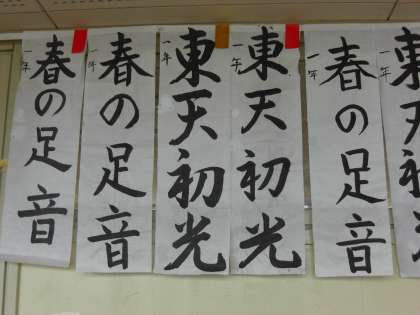 春の足音
一年
春の足音
一年
東天初光
一年
東天初光
一年
春の足音
一年
東天初光
一年